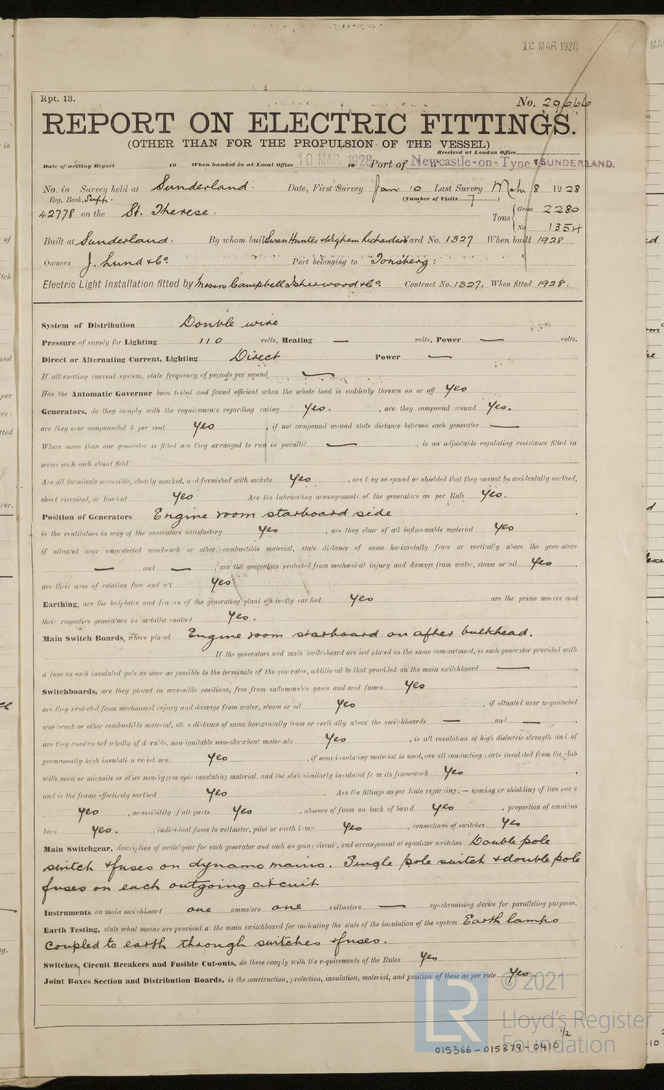 12 MAR 1928
Rpt. 13.
No. 29666
REPORT ON ELECTRIC FITTINGS.
(OTHER THAN FOR THE PROPULSION OF THE VESSEL)
Received at London Office
Date of writing Report 19 When handed in at Local Office 10 MAR. 1928 Port of Newcastle-on-Tyne & SUNDERLAND.
No. in Survey held at Sunderland. Date, First Survey Jan 10 Last Survey Mch 8 1928
Reg. Book. Supp. (Number of Visits 7)
42778 on the St. Therese. Tons { Gross 2280
Net 1354
Built at Sunderland. By whom built Swan Hunter & Wigham Richardson Yard No. 1327 When built 1928.
Owners J. Lund & Co. Port belonging to Tonsberg.
Electric Light Installation fitted by Messrs Campbell & Isherwood & Co Contract No. 1327. When fitted 1928.
System of Distribution Double wire
Pressure of supply for Lighting 110 volts, Heating — volts, Power — volts.
Direct or Alternating Current, Lighting Direct Power —
If alternating current system, state frequency of periods per second —
Has the Automatic Governor been tested and found efficient when the whole load is suddenly thrown on or off Yes
Generators, do they comply with the requirements regarding rating Yes. , are they compound wound Yes.
are they over compounded 5 per cent. Yes , if not compound wound state distance between each generator —
Where more than one generator is fitted are they arranged to run in parallel — , is an adjustable regulating resistance fitted in
series with each shunt field
Are all terminals accessible, clearly marked, and furnished with sockets Yes , are they so spaced or shielded that they cannot be accidentally earthed,
short circuited, or touched Yes Are the lubricating arrangements of the generators as per Rule Yes.
Position of Generators Engine room starboard side
is the ventilation in way of the generators satisfactory Yes , are they clear of all inflammable material Yes
if situated near unprotected woodwork or other combustible material, state distance of same horizontally from or vertically above the generators
— and — , are the generators protected from mechanical injury and damage from water, steam or oil Yes
are their axes of rotation fore and aft Yes
Earthing, are the bedplates and frames of the generating plant efficiently earthed Yes are the prime movers and
their respective generators in metallic contact Yes.
Main Switch Boards, where placed Engine room starboard on after bulkhead.
If the generators and main switchboard are not placed in the same compartment, is each generator provided with
a fuse on each insulated pole as near as possible to the terminals of the generator, additional to that provided on the main switchboard —
Switchboards, are they placed in accessible positions, free from inflammable gases and acid fumes Yes
are they protected from mechanical injury and damage from water, steam or oil Yes , if situated near unprotected
woodwork or other combustible material, state distance of same horizontally from or vertically above the switchboards — and —
are they constructed wholly of durable, non-ignitable non-absorbent materials Yes , is all insulation of high dielectric strength and of
permanently high insulation resistance Yes , if semi-insulating material is used, are all conducting parts insulated from the slab
with mica or micanite or other non-hygroscopic insulating material, and the slab similarly insulated from its framework Yes
and is the frame effectively earthed Yes . Are the fittings as per Rule regarding:— spacing or shielding of live parts
Yes , accessibility of all parts Yes , absence of fuses on back of board Yes , proportion of omnibus
bars Yes. , individual fuses to voltmeter, pilot or earth lamp Yes , connections of switches Yes
Main Switchgear, description of switchgear for each generator and each outgoing circuit, and arrangement of equalizer switches Double pole
switch & fuses on dynamo mains. Single pole switch & double pole
fuses on each outgoing circuit
Instruments on main switchboard one ammeters one voltmeters — synchronising device for paralleling purposes.
Earth Testing, state what means are provided at the main switchboard for indicating the state of the insulation of the system Earth lamps
coupled to earth through switches & fuses.
Switches, Circuit Breakers and Fusible Cut-outs, do these comply with the requirements of the Rules Yes
Joint Boxes Section and Distribution Boards, is the construction, protection, insulation, material, and position of these as per rule Yes.
© 2021
LR
Lloyd's Register
Foundation
1/2
015366-015379-0410